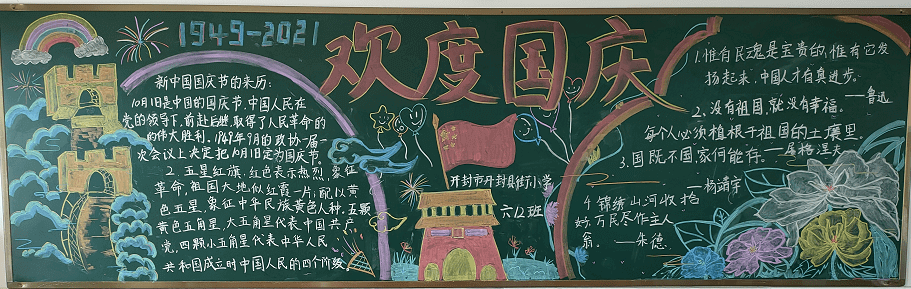 1949-2021
欢度国庆
新中国国庆节的来历:
10月1日是中国的国庆节,中国人民在
党的领导下,前赴后继,取得了人民革命的
的伟大胜利。1949年9月的政协一届一
次会议上决定把10月1日定为国庆节。
2.五星红旗,红色表示热烈,象征
革命,祖国大地似红霞一片,配以黄
色五星,象征中华民族黄色人种。五颗
黄色五角星,大五角星代表中国共产
党,四颗小五角星代表中华人民
共和国成立时中国人民的四个阶级
开封市开封县街小学
六(2)班
1.惟有民魂是宝贵的,惟有它发
扬起来,中国人才有真进步。
——鲁迅
2.没有祖国,就没有幸福。
每个人必须植根于祖国的土壤里。
——屠格涅夫
3.国既不国,家何能存。
——杨靖宇
4.锦绣山河收拾
好,万民尽作主人
翁。——朱德